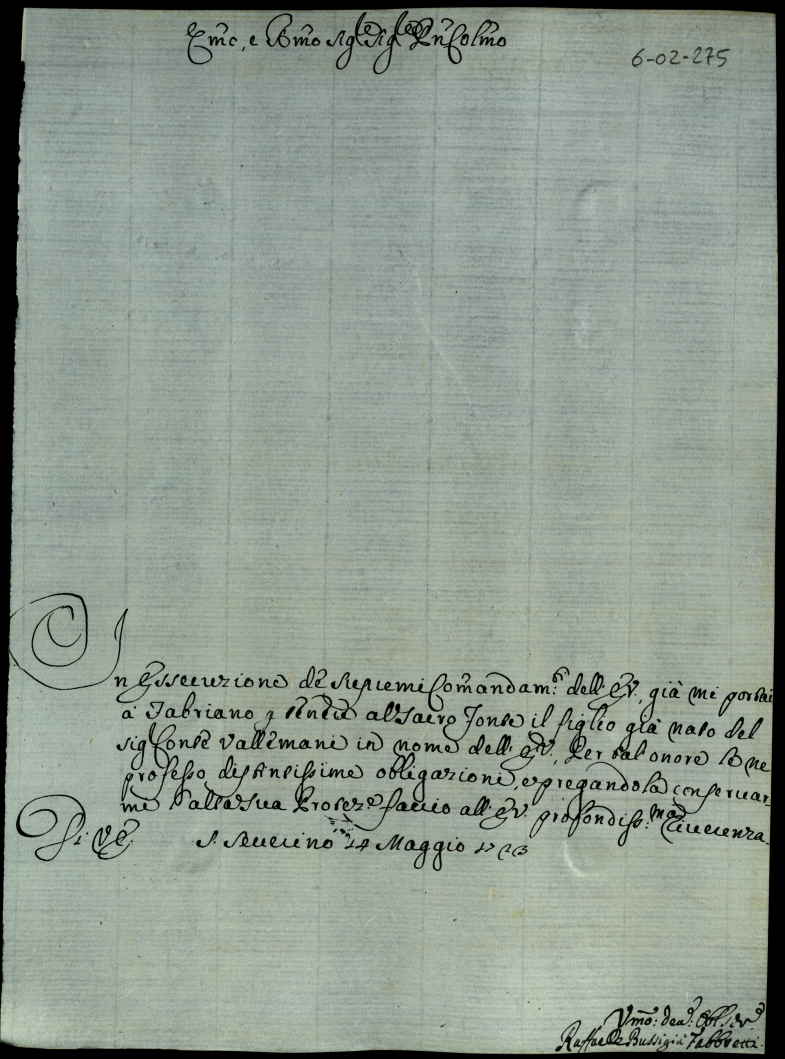 Emo, e Rmo Sig.re Sig.re Prn Colmo
6-02-275
In Essecuzione de Supremi Comandam.ti dell'E.V. già mi portai
à Fabriano p tenere al Sacro Fonte il figlio già nato del
Sig Conte Vallemani in nome dell'E.V. Per tal onore le ne
professo distintissime obligazioni, e pregandola conservar
mi l'alta sua Protez.e faccio all'E.V. profondiss.ma riverenza.
Di V.E. S. Severino 14 Maggio
Vmo: Dev: Obl: Ser
Raffaele Fabbretti